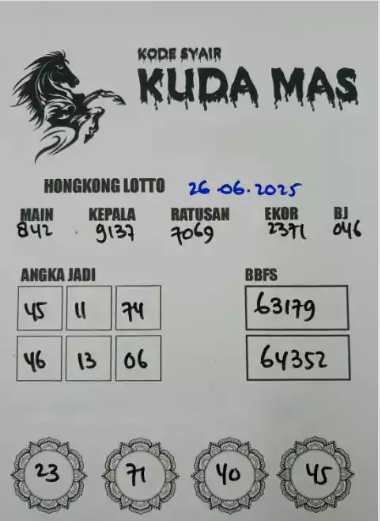 KODE SYAIR
KUDA MAS
HONGKONG LOTTO 26.06.2025
MAIN KEPALA RATUSAN EKOR BJ
842 9137 7069 2371 046
ANGKA JADI BBFS
45 11 74 63179
46 13 06 64352
23 71 40 45